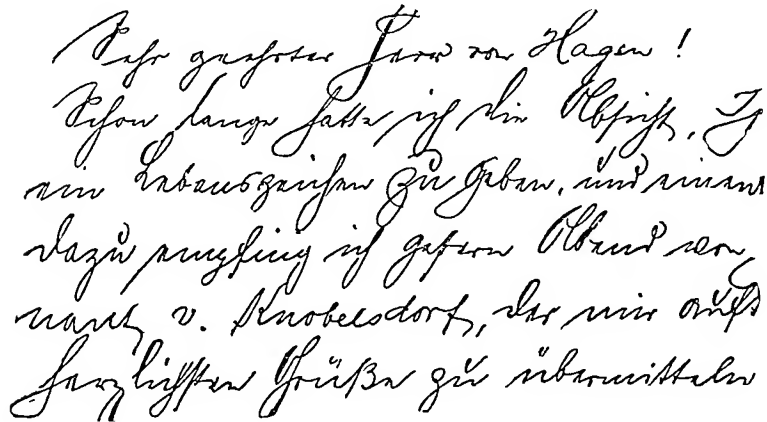 Sehr geehrter Herr von Hagen!
Schon lange hatte ich die Absicht, Ih
ein Lebenszeichen zu geben, und einen
dazu empfing ich gestern Abend von
nant v. Knobelsdorf, der mir auft
herzlichsten Grüße zu übermitteln